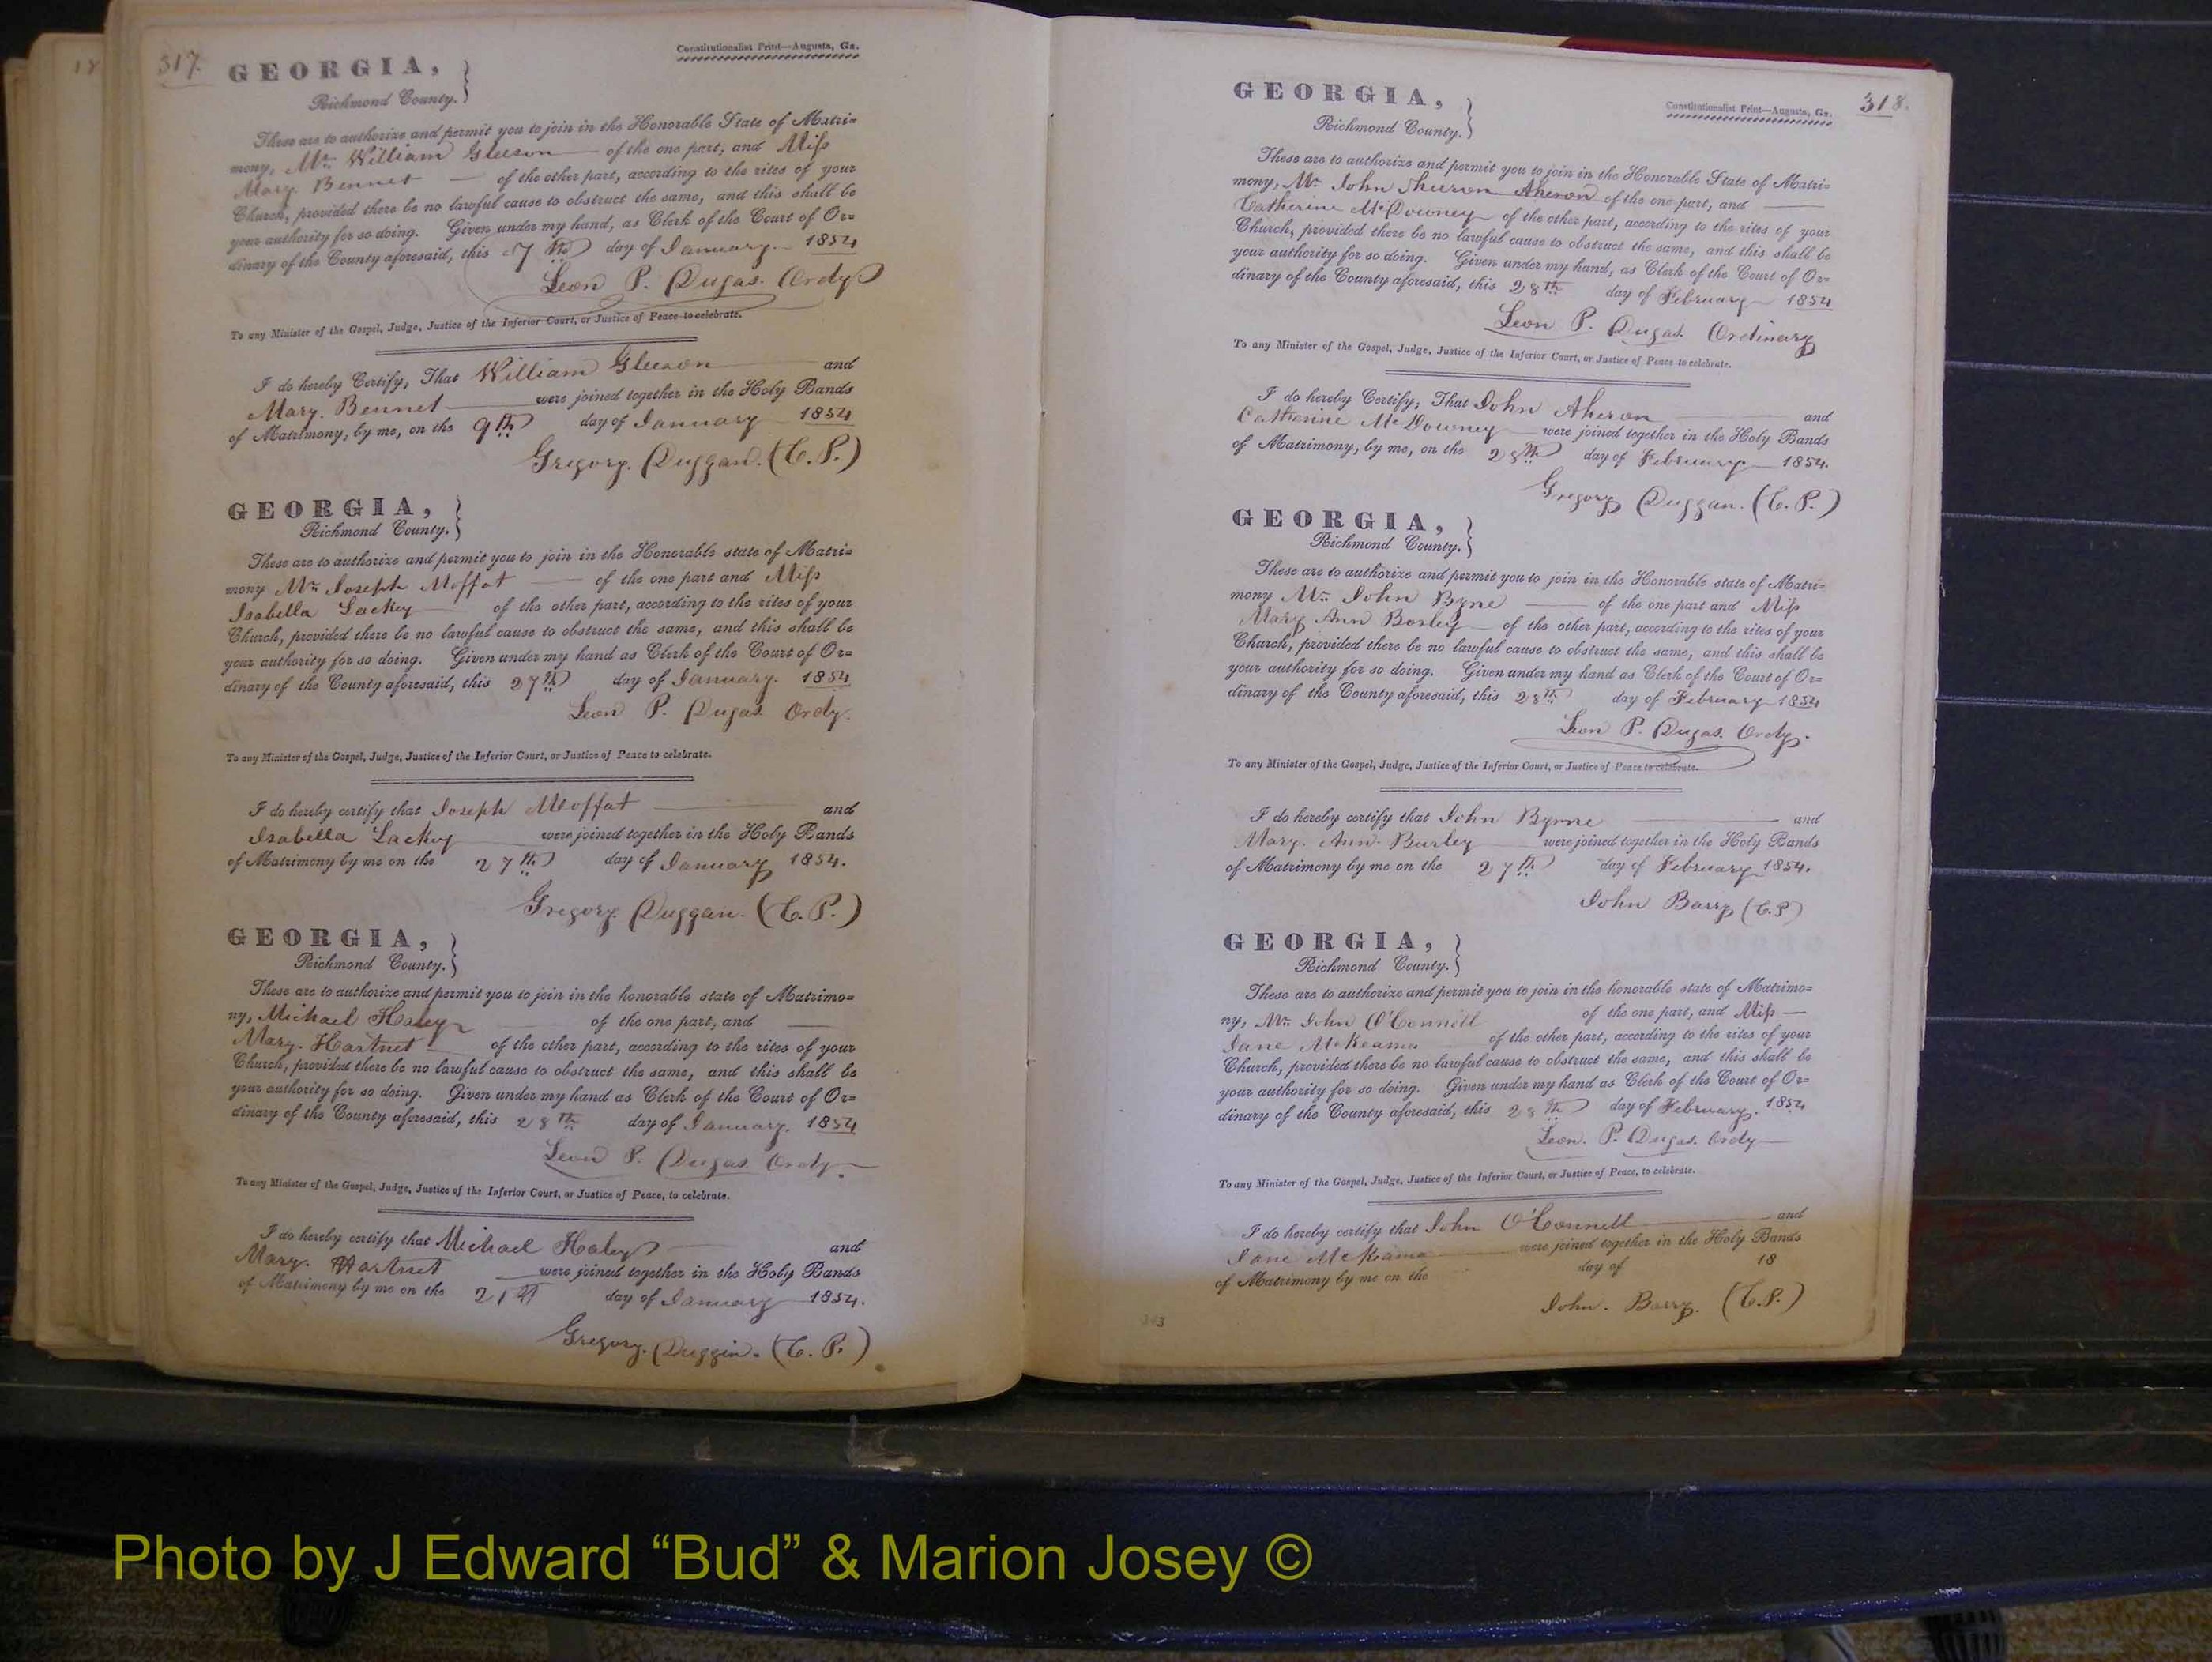 317.
Constitutionalist Print—Augusta, Ga.
GEORGIA,
Richmond County.
These are to authorize and permit you to join in the Honorable State of Matri=
mony, Mr. William Gleeson of the one part, and Miss
Mary. Bennet of the other part, according to the rites of your
Church, provided there be no lawful cause to obstruct the same, and this shall be
your authority for so doing. Given under my hand, as Clerk of the Court of Or=
dinary of the County aforesaid, this 7th day of January 1854
Leon P. Dugas. Ordy
To any Minister of the Gospel, Judge, Justice of the Inferior Court, or Justice of Peace to celebrate.
I do hereby Certify, That William Gleeson and
Mary. Bennet were joined together in the Holy Bands
of Matrimony, by me, on the 9th day of January 1854
Gregory. Duggan. (C. P.)
GEORGIA,
Richmond County.
These are to authorize and permit you to join in the Honorable state of Matri=
mony Mr Joseph Moffat of the one part and Miss
Isabella Lackey of the other part, according to the rites of your
Church, provided there be no lawful cause to obstruct the same, and this shall be
your authority for so doing. Given under my hand as Clerk of the Court of Or=
dinary of the County aforesaid, this 27th day of January. 1854
Leon P. Dugas Ordy.
To any Minister of the Gospel, Judge, Justice of the Inferior Court, or Justice of Peace to celebrate.
I do hereby certify that Joseph Moffat and
Isabella Lackey were joined together in the Holy Bands
of Matrimony by me on the 27th day of January 1854.
Gregory Duggan. (C. P.)
GEORGIA,
Richmond County.
These are to authorize and permit you to join in the honorable state of Matrimo=
ny, Michael Haley of the one part, and
Mary. Hartnet of the other part, according to the rites of your
Church, provided there be no lawful cause to obstruct the same, and this shall be
your authority for so doing. Given under my hand as Clerk of the Court of Or=
dinary of the County aforesaid, this 28th day of January. 1854
Leon P. Dugas Ordy.
To any Minister of the Gospel, Judge, Justice of the Inferior Court, or Justice of Peace, to celebrate.
I do hereby certify that Michael Haley and
Mary. Hartnet were joined together in the Holy Bands
of Matrimony by me on the 21st day of January 1854.
Gregory. Duggin. (C. P.)
318.
Constitutionalist Print—Augusta, Ga.
GEORGIA,
Richmond County.
These are to authorize and permit you to join in the Honorable State of Matri=
mony, Mr. John Aheron of the one part, and
Catherine McDowney of the other part, according to the rites of your
Church, provided there be no lawful cause to obstruct the same, and this shall be
your authority for so doing. Given under my hand, as Clerk of the Court of Or=
dinary of the County aforesaid, this 28th day of February 1854
Leon P. Dugas. Ordinary
To any Minister of the Gospel, Judge, Justice of the Inferior Court, or Justice of Peace to celebrate.
I do hereby Certify, That John Aheron and
Catherine McDowney were joined together in the Holy Bands
of Matrimony, by me, on the 28th day of February 1854.
Gregory Duggan. (C. P.)
GEORGIA,
Richmond County.
These are to authorize and permit you to join in the Honorable state of Matri=
mony Mr. John Byne of the one part and Miss
Mary Ann Bosley of the other part, according to the rites of your
Church, provided there be no lawful cause to obstruct the same, and this shall be
your authority for so doing. Given under my hand as Clerk of the Court of Or=
dinary of the County aforesaid, this 28th day of February 1854
Leon P. Dugas. Ordy.
To any Minister of the Gospel, Judge, Justice of the Inferior Court, or Justice of Peace to celebrate.
I do hereby certify that John Byrne and
Mary. Ann. Burley were joined together in the Holy Bands
of Matrimony by me on the 27th day of February 1854.
John Barry (C.P)
GEORGIA,
Richmond County.
These are to authorize and permit you to join in the honorable state of Matrimo=
ny, Mr. John O'Connell of the one part, and Miss
Jane McKeama of the other part, according to the rites of your
Church, provided there be no lawful cause to obstruct the same, and this shall be
your authority for so doing. Given under my hand as Clerk of the Court of Or=
dinary of the County aforesaid, this 28th day of February. 1854
Leon. P. Dugas. Ordy
To any Minister of the Gospel, Judge, Justice of the Inferior Court, or Justice of Peace, to celebrate.
I do hereby certify that John O'Connell and
Jane McKeama were joined together in the Holy Bands
of Matrimony by me on the day of 18
John. Barry. (C.P.)
Photo by J Edward “Bud” & Marion Josey ©